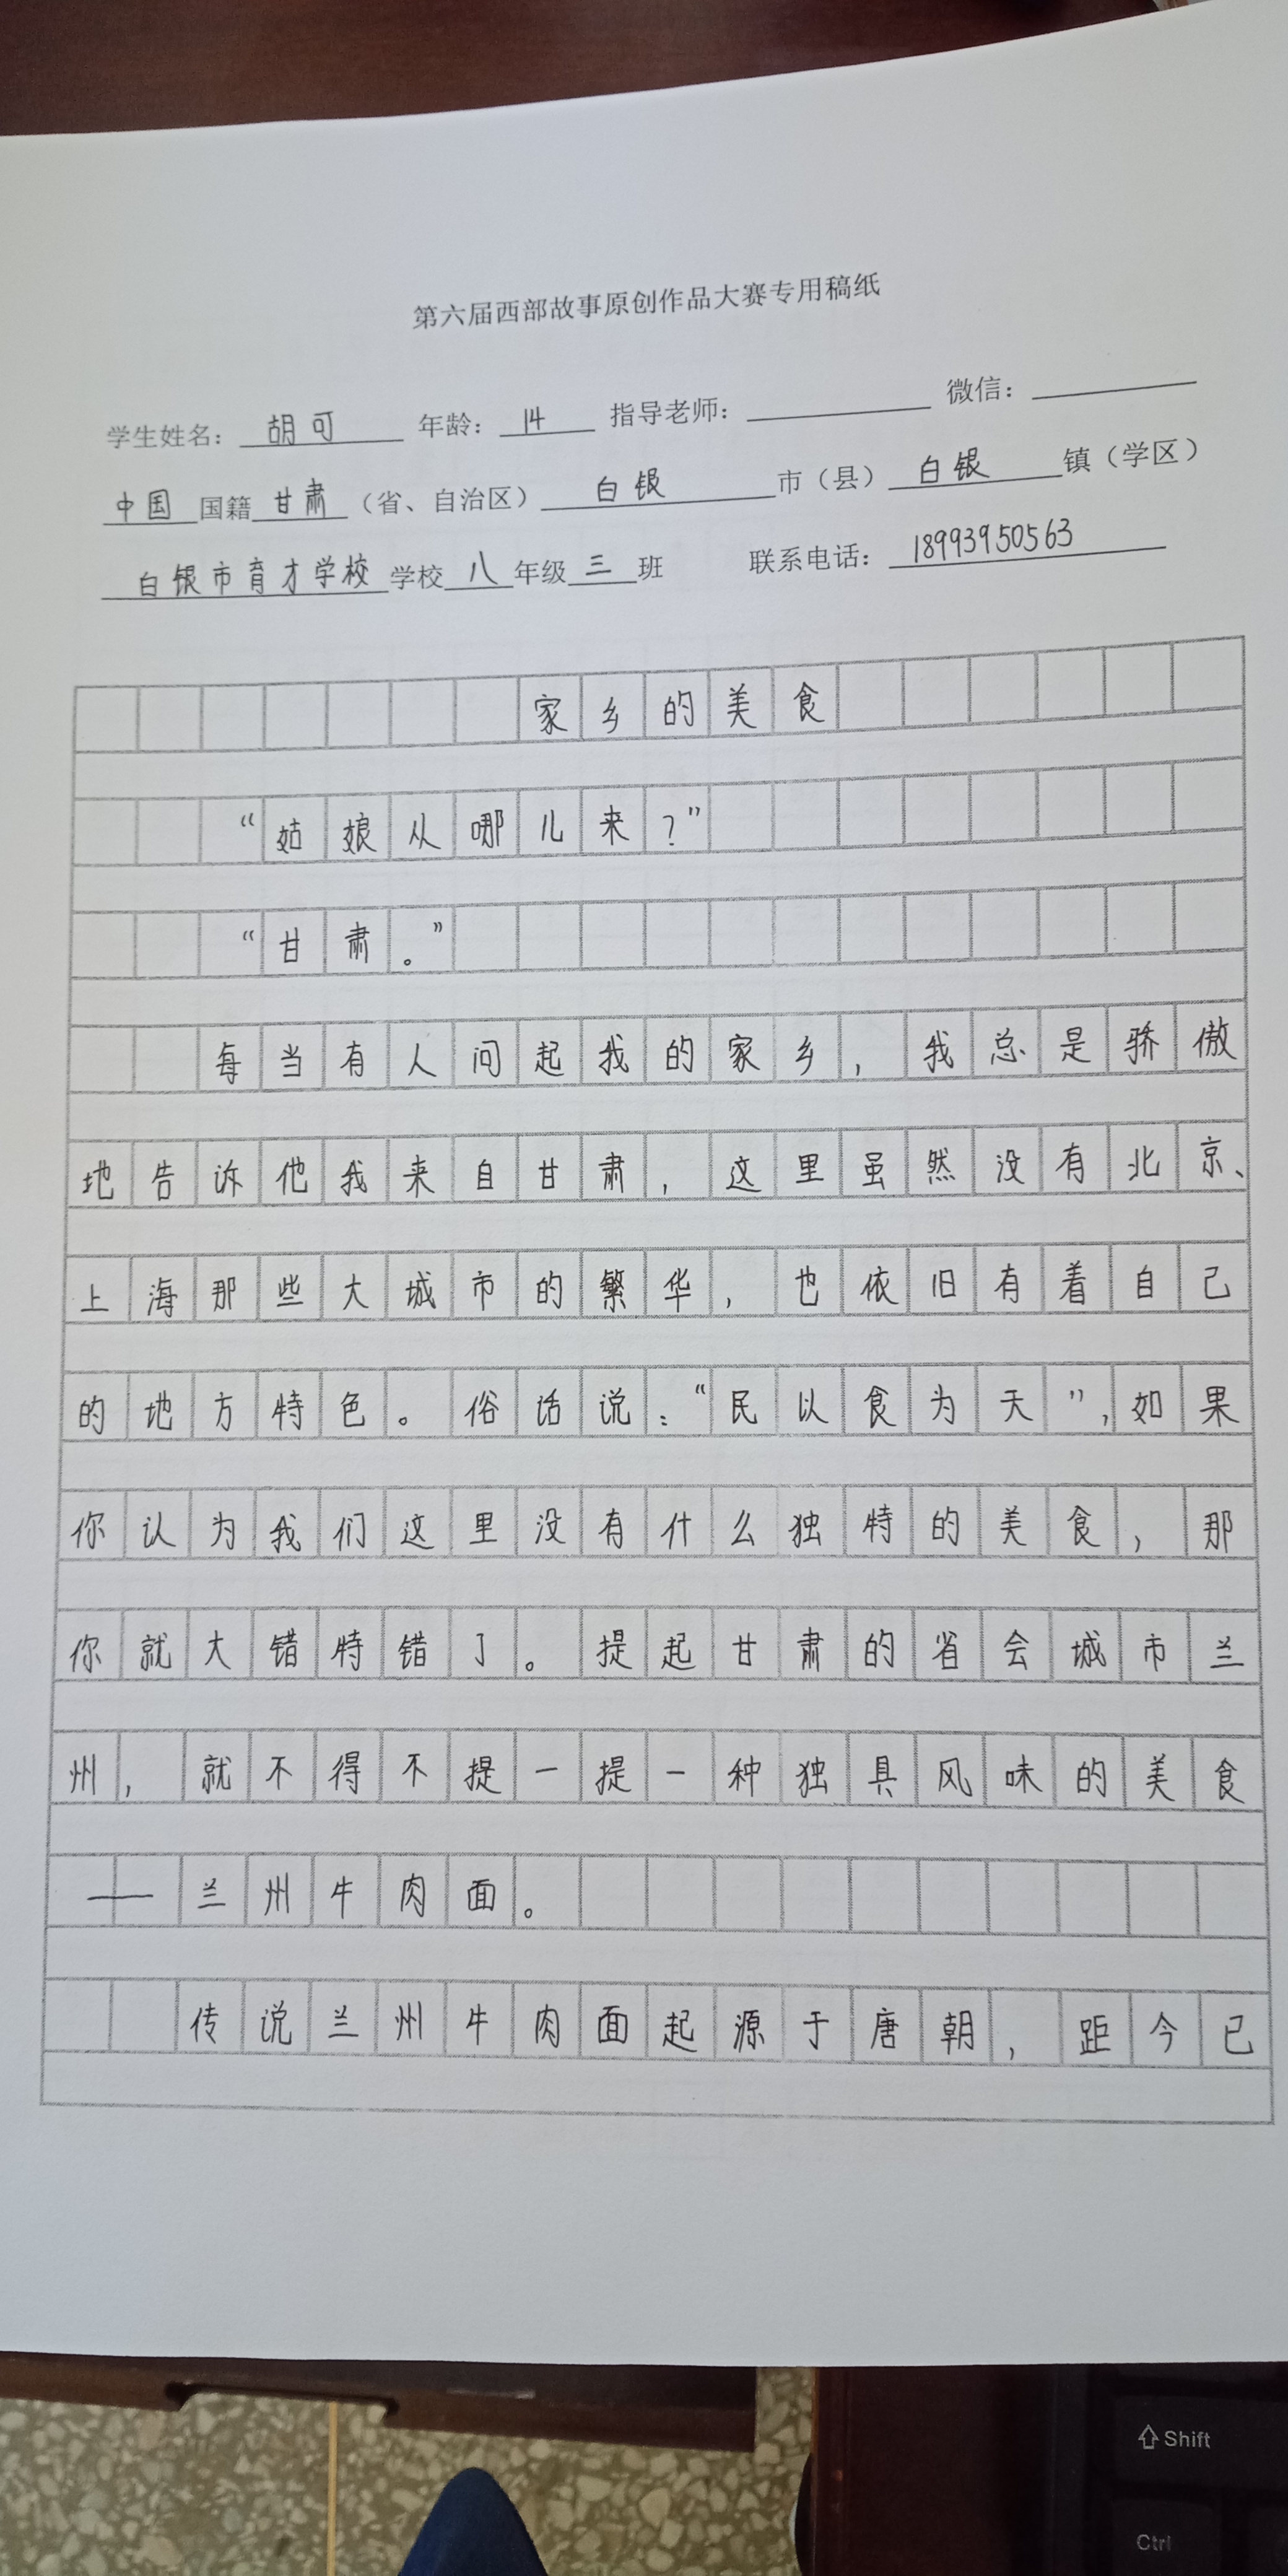 第六届西部故事原创作品大赛专用稿纸
学生姓名：胡可 年龄：14 指导老师： 微信：
中国国籍甘肃（省、自治区）白银市（县）白银镇（学区）
白银市育才学校学校八年级三班 联系电话：18993950563
家乡的美食
“姑娘从哪儿来？”
“甘肃。”
每当有人问起我的家乡，我总是骄傲
地告诉他我来自甘肃，这里虽然没有北京、
上海那些大城市的繁华，也依旧有着自己
的地方特色。俗话说：“民以食为天”，如果
你认为我们这里没有什么独特的美食，那
你就大错特错了。提起甘肃的省会城市兰
州，就不得不提一提一种独具风味的美食
——兰州牛肉面。
传说兰州牛肉面起源于唐朝，距今已
Shift
Ctrl